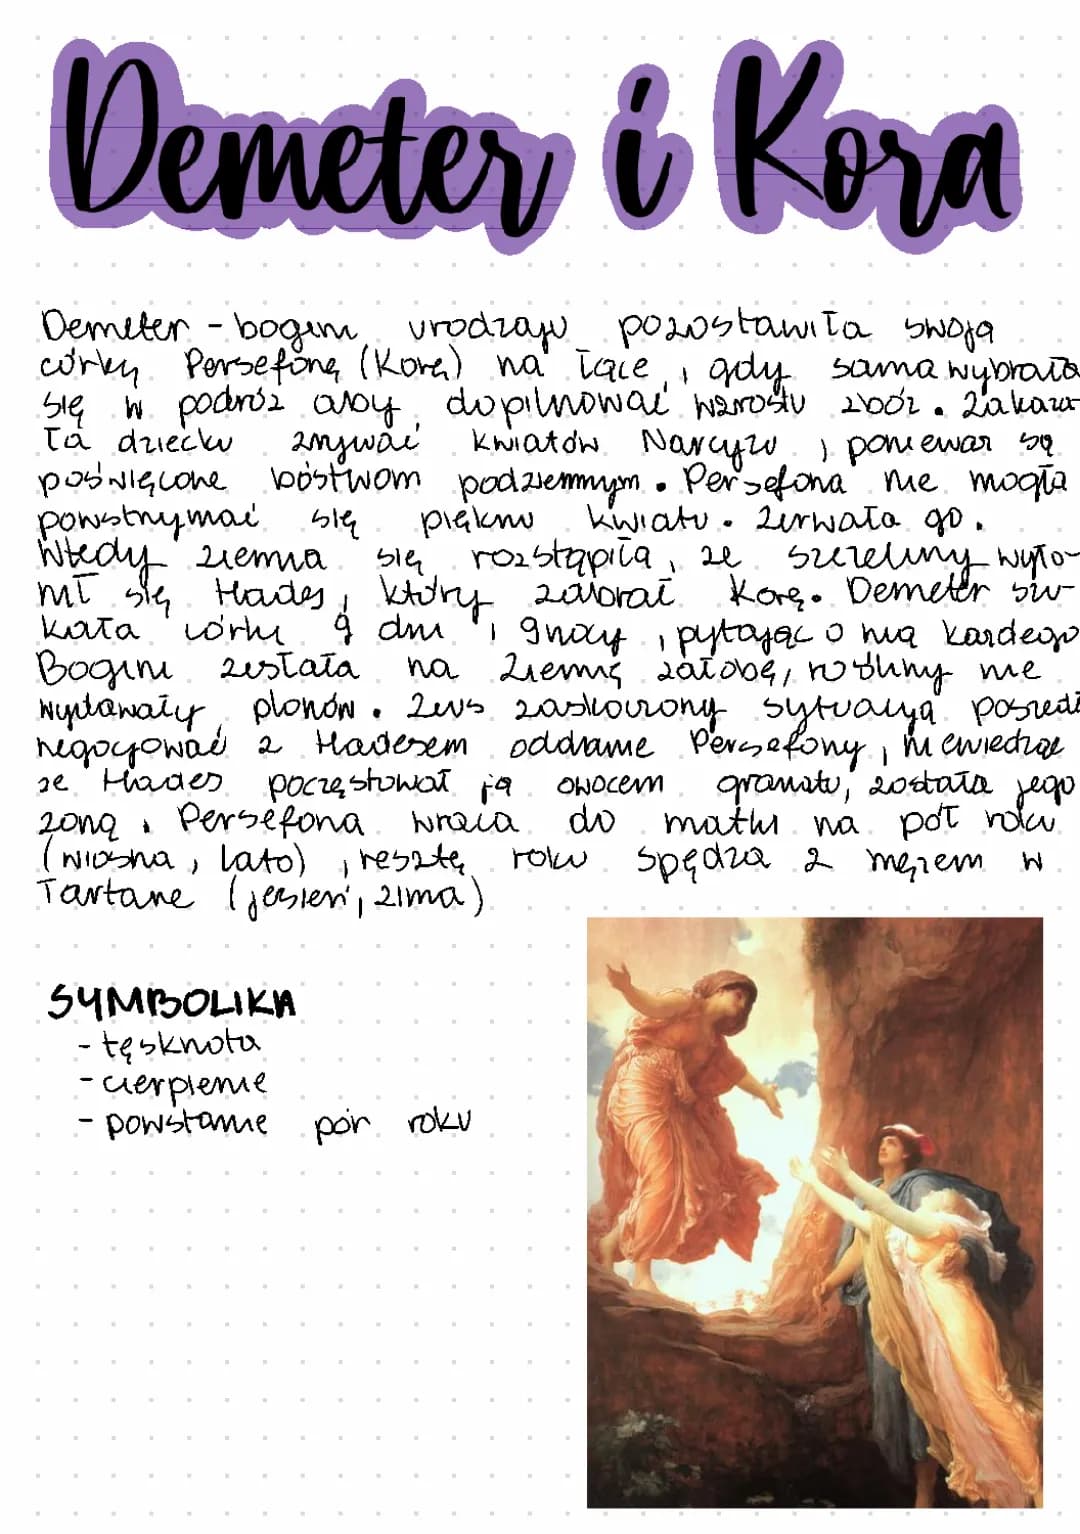 Demeter i Kora
Demeter - bogini urodzaju pozostawiła swoją
córkę Persefonę (Korę) na łące, gdy sama wybrała
się w podróż aby dopilnować wzrostu zbóż. Zakaza-
ła dziecku zrywać kwiatów Narcyzu, ponieważ są
poświęcone bóstwom podziemnym. Persefona nie mogła
powstrzymać się pięknu kwiatu. Zerwała go.
Wtedy ziemia się rozstąpiła, ze szczeliny wyło-
nił się Hades, który zabrał Korę. Demeter szu-
kała córki 9 dni i 9 nocy, pytając o nią każdego
Bogini zesłała na Ziemię żałobę, rośliny nie
wydawały plonów. Zeus zaskoczony sytuacją poszedł
negocjować z Hadesem oddanie Persefony, niewiedząc
że Hades poczęstował ją owocem granatu, została jego
żoną. Persefona wraca do matki na pół roku
(wiosna, lato), resztę roku spędza z mężem w
Tartarze (jesień, zima)
SYMBOLIKA
- tęsknota
- cierpienie
- powstanie pór roku